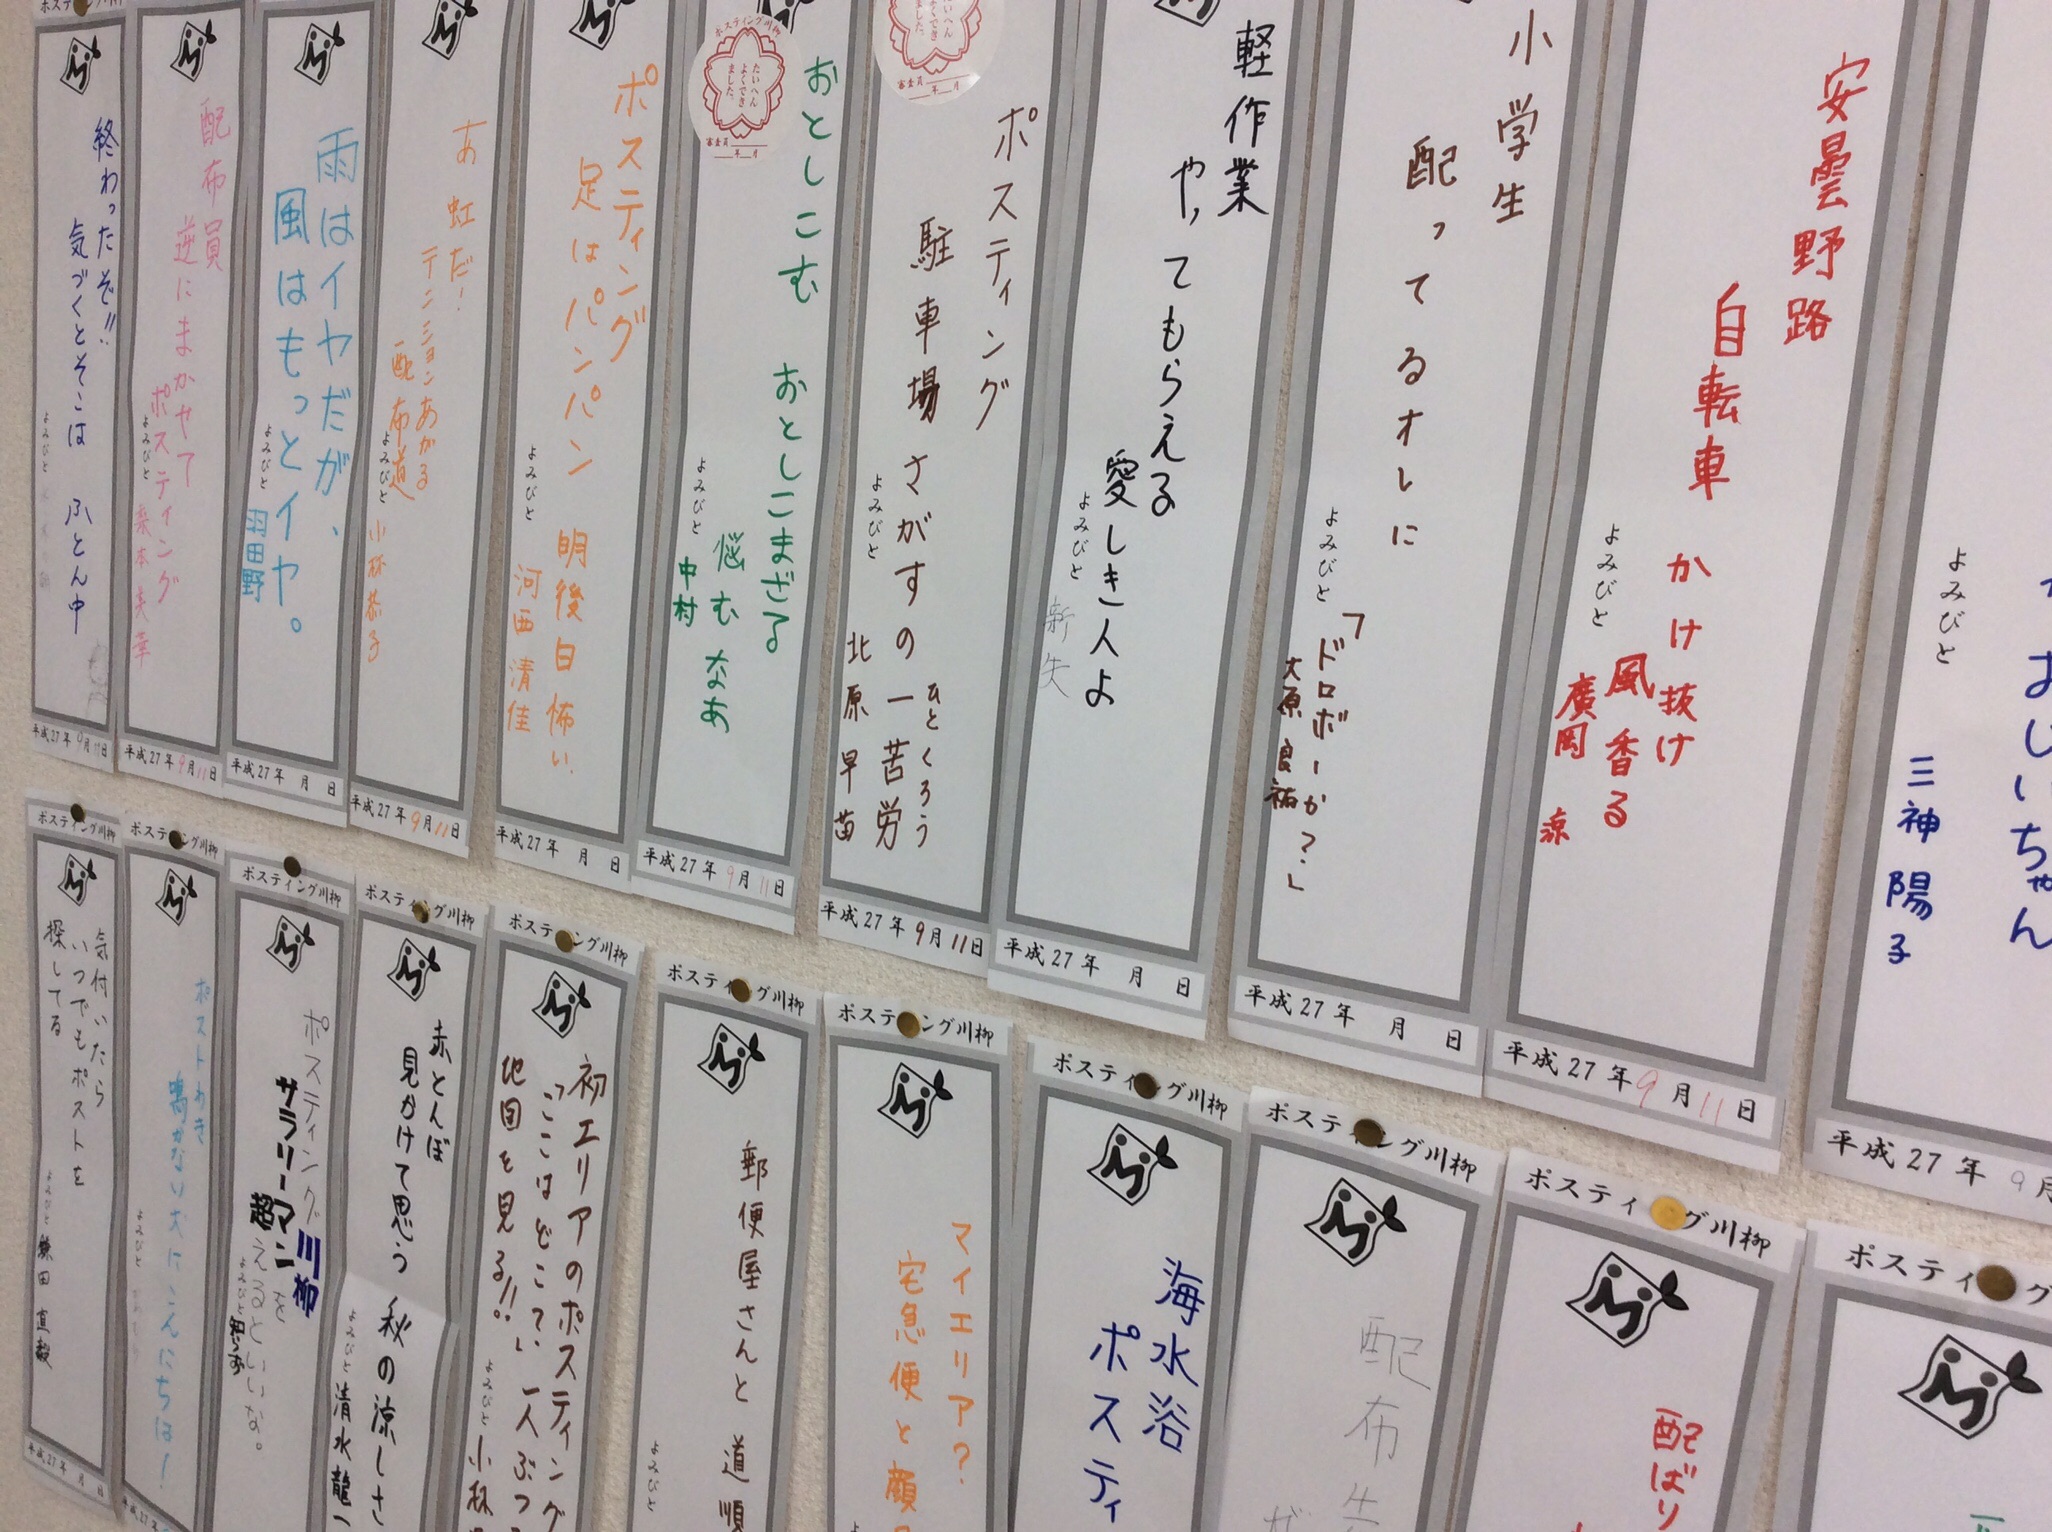 安曇野路
自転車 かけ抜け
風香る
よみびと 廣岡 涼
平成27年9月11日
小学生
配ってるオレに
「ドロボーか?」
よみびと 大原 良祐
平成27年 月 日
軽作業
やってもらえる
愛しき人よ
よみびと 新矢
平成27年 月 日
ポスティング
駐車場 さがすの一苦労
ひとくろう
よみびと 北原 早苗
平成27年9月11日
ポスティング川柳
たいへん
よくでき
ました。
審査員
年 月
おとしこむ
おとしこまざる
悩むなあ
よみびと 中村
平成27年9月11日
ポスティング
足はパンパン
明後日怖い.
よみびと 河西 清佳
平成27年 月 日
あ 虹だ!
テンションあがる
配布道
よみびと 小林恭子
平成27年9月11日
雨はイヤだが、
風はもっとイヤ。
よみびと 羽田野
平成27年 月 日
配布員
逆にまかせて
ポスティング
よみびと 桑本美華
平成27年9月11日
終わったぞ!!
気づくとそこは
ふとん中
よみびと
平成27年9月11日
おじいちゃん
よみびと 三神 陽子
平成27年9月
ポスティング川柳
配ばり
ポスティング川柳
配布
ポスティング川柳
海水浴
ポスティ
ポスティング川柳
マイエリア?
宅急便と顔
ポスティング川柳
郵便屋さんと
道順
よみびと
ポスティング川柳
初エリアのポスティング
「ここはどこ」て 一人ぶつ
地図を見る!!。
よみびと 小林
ポスティング川柳
赤とんぼ
見かけて思う
秋の涼しさ
よみびと 清水龍一
ポスティング川柳
ポスティング川柳
サラリーマンを
超えるといいな。
よみびと知らず
ポスティング川柳
ポストわき
鳴かない犬にこんにちは!
よみびと
平成27年
ポスティング川柳
気付いたら
いつでもポストを
探してる
よみびと 鎌田 直毅
平成27年 月 日